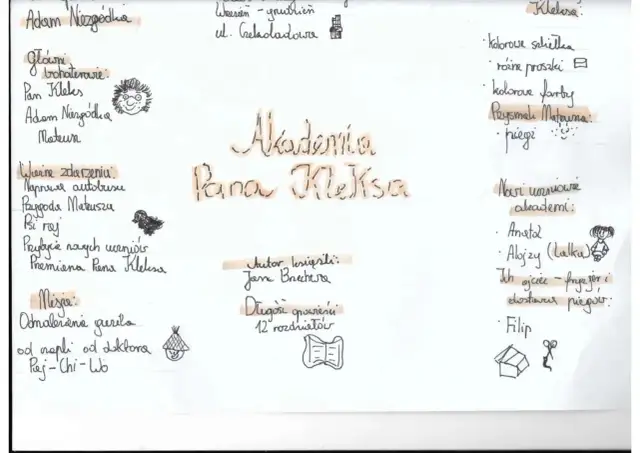 Adam Niezgódka
Główni
bohaterowie:
Pan Kleks
Adam Niezgódka
Mateusz
Ważne zdarzenia:
Naprawa autobusu
Przygoda Mateusza
Psi raj
Przybycie nowych uczniów
Przemiana Pana Kleksa
Misja:
Odnalezienie guzika
od czapki od doktora
Paj-Chi-Wo
Wrzesień - grudzień
ul. Czekoladowa
Akademia
Pana Kleksa
Autor książki:
Jan Brzechwa
Długość opowieści
12 rozdziałów
Kleksa:
· kolorowe szkiełka
· różne proszki
· kolorowe farby
Przysmak Mateusza:
· piegi
Nowi uczniowie
akademi:
· Anatol
· Alojzy (Lalka)
Ich ojciec - fryzjer i
dostawca piegów:
· Filip